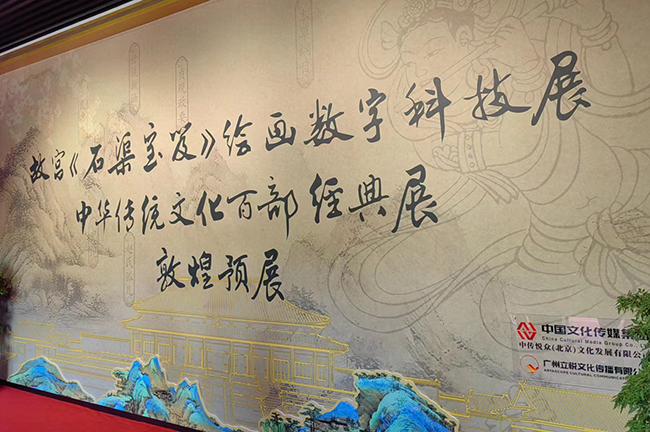 故宫《石渠宝笈》绘画数字科技展
中华传统文化百部经典展
敦煌预展
中国文化传媒集
China Cultural Media Group Co.
中传悦众(北京)文化发展有限公
广州立悦文化传播有限公